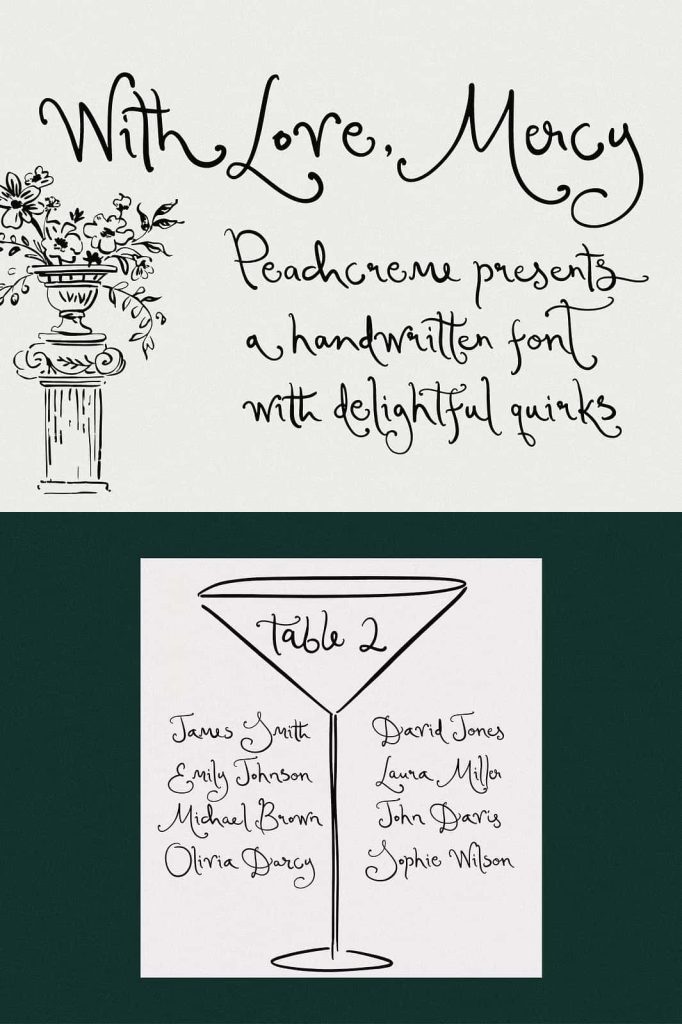 With Love, Mercy
Peachcreme presents
a handwritten font
with delightful quirks
Table 2
James Smith
Emily Johnson
Michael Brown
Olivia Darcy
David Jones
Laura Miller
John Davis
Sophie Wilson